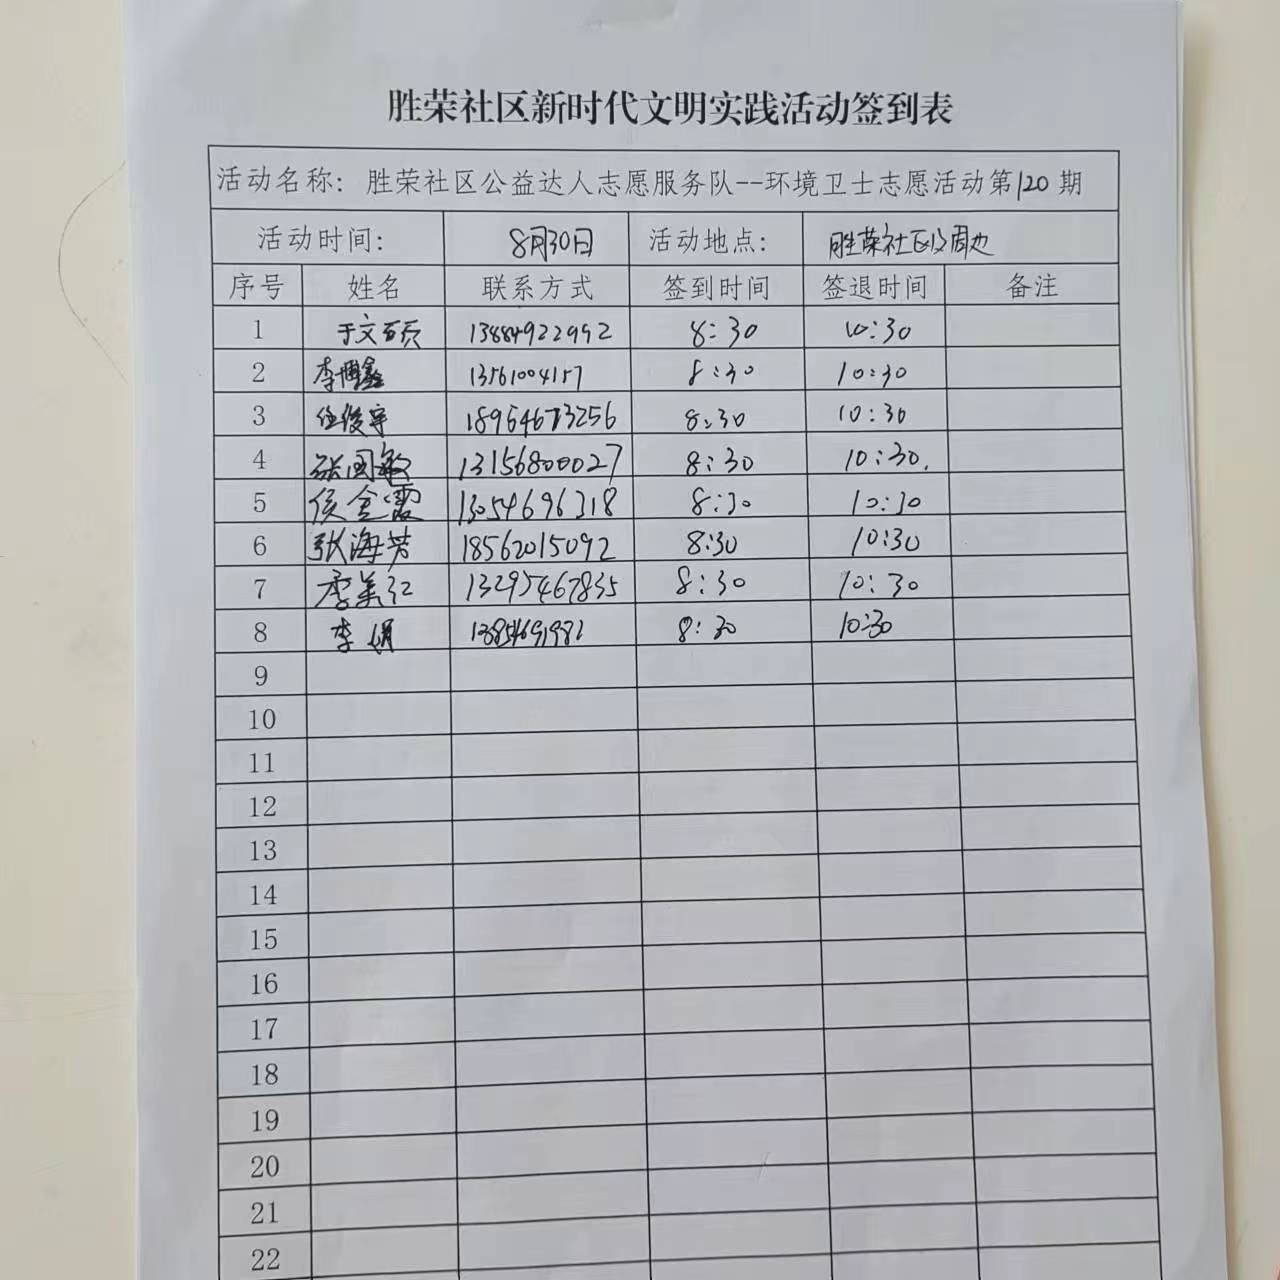 胜荣社区新时代文明实践活动签到表
活动名称：胜荣社区公益达人志愿服务队--环境卫士志愿活动第120期
活动时间： 8月30日 活动地点： 胜荣社区及周边
序号 姓名 联系方式 签到时间 签退时间 备注
1 于文硕 13884922952 8:30 10:30
2 李博鑫 13561004157 8:30 10:30
3 任俊宇 18954673256 8:30 10:30
4 张国敏 13156800027 8:30 10:30.
5 侯金霞 13054696318 8:30 10:30
6 张海芳 18562015092 8:30 10:30
7 季美红 13295467835 8:30 10:30
8 李娟 13854691982 8:30 10:30
9
10
11
12
13
14
15
16
17
18
19
20
21
22